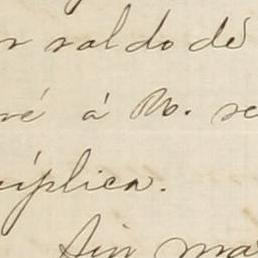 r saldo dé
ré á Vo. se
úplica.
Sin ma